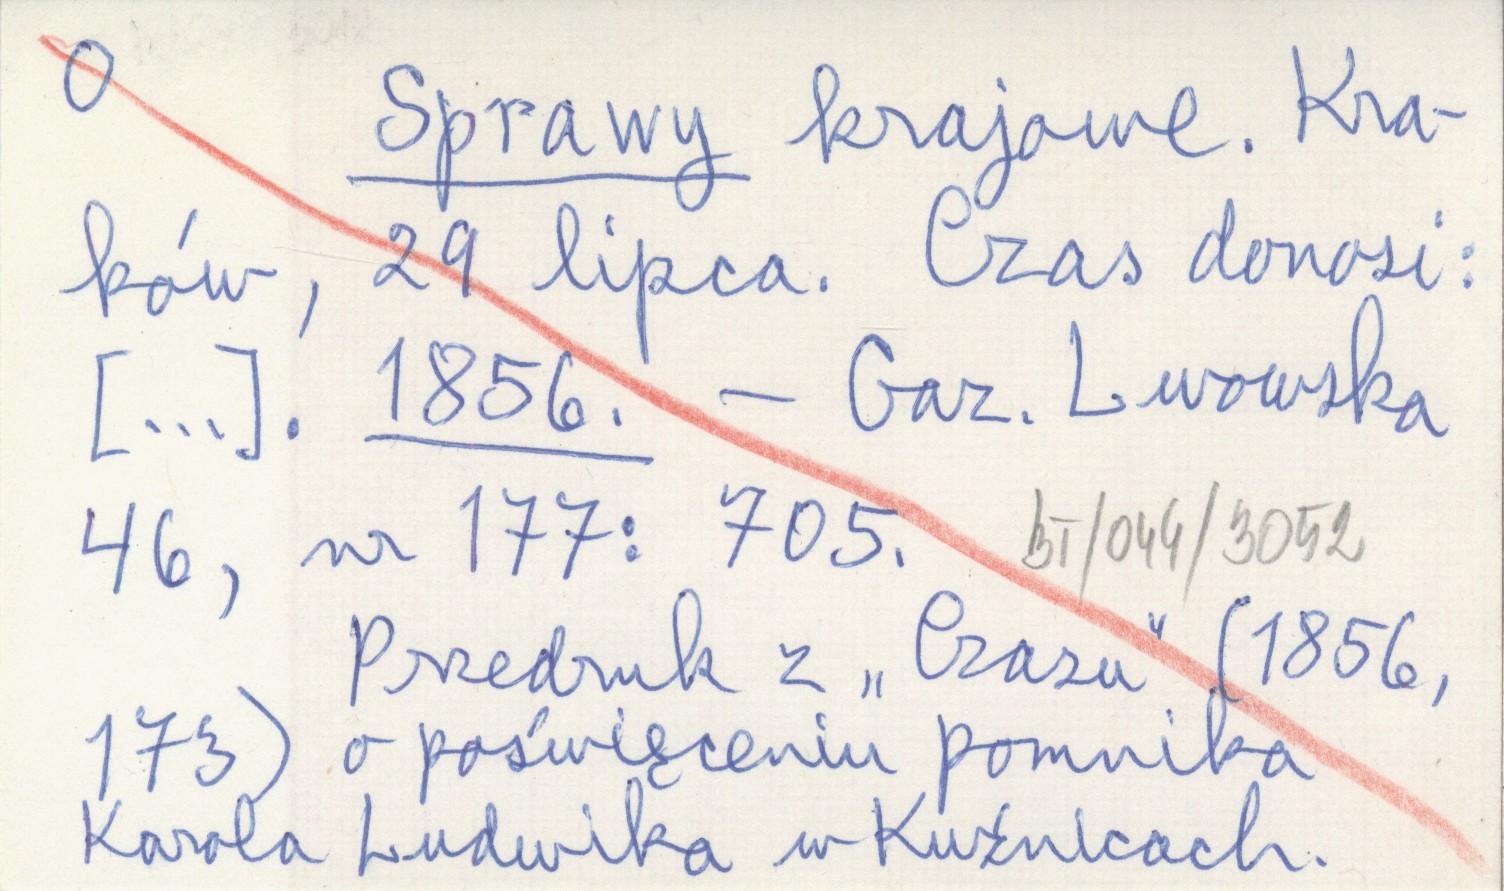 O Sprawy krajowe. Kra-
ków, 29 lipca. Czas donosi:
[...]. 1856. – Gaz. Lwowska
46, nr 177: 705. BT/044/3052
Przedruk z „Czasu" (1856,
173) o poświęceniu pomnika
Karola Ludwika w Kuźnicach.